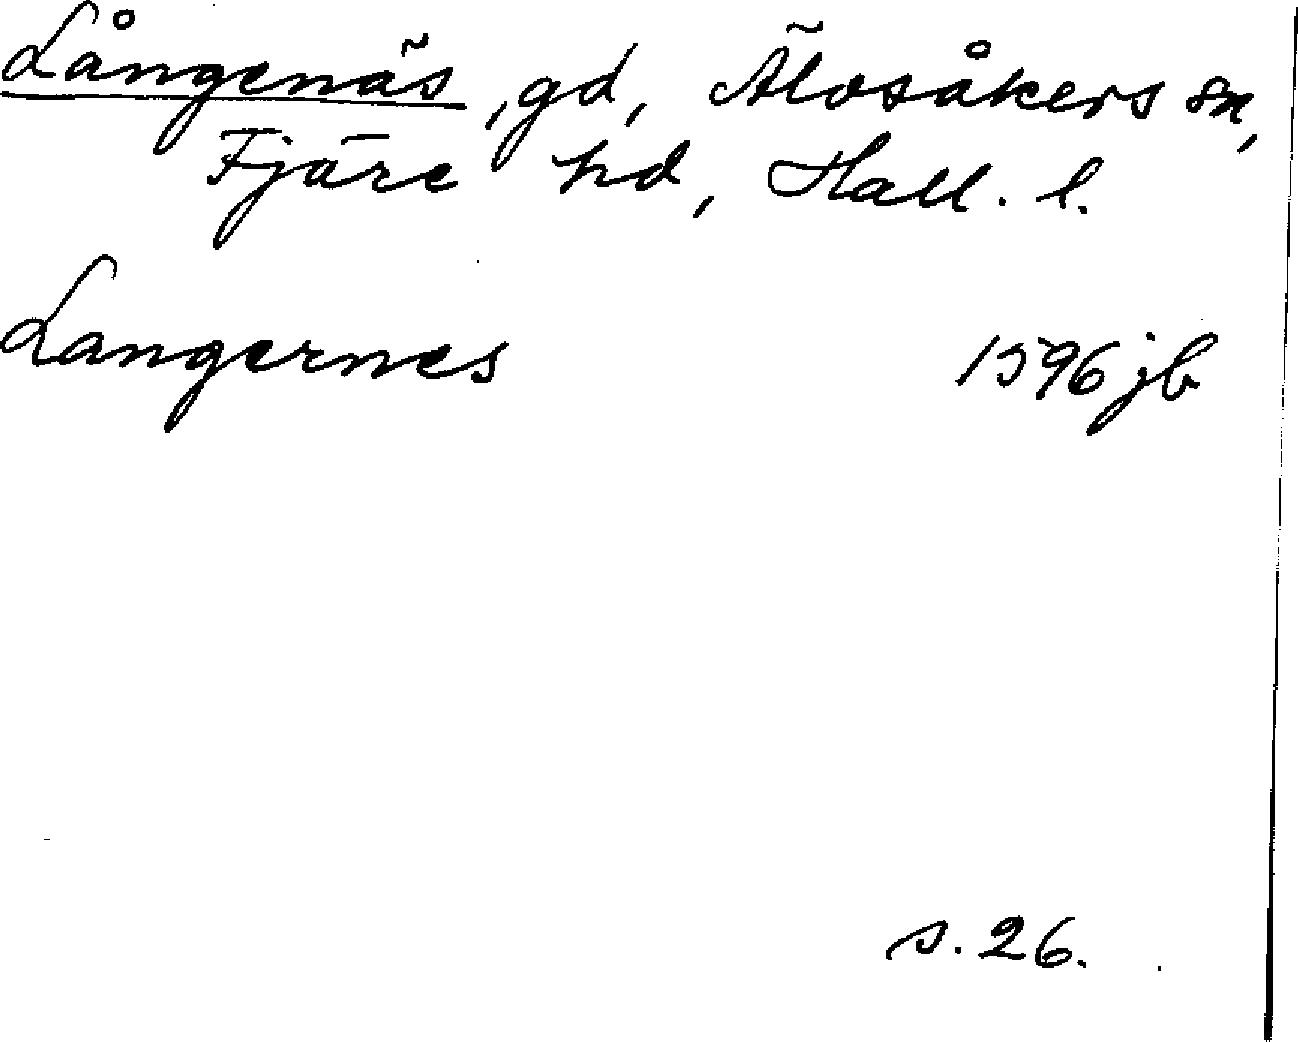 Långenäs, gd, Älvsåkers sn,
Fjäre hd, Hall. l.
Langernes 1596 jb
s. 26.